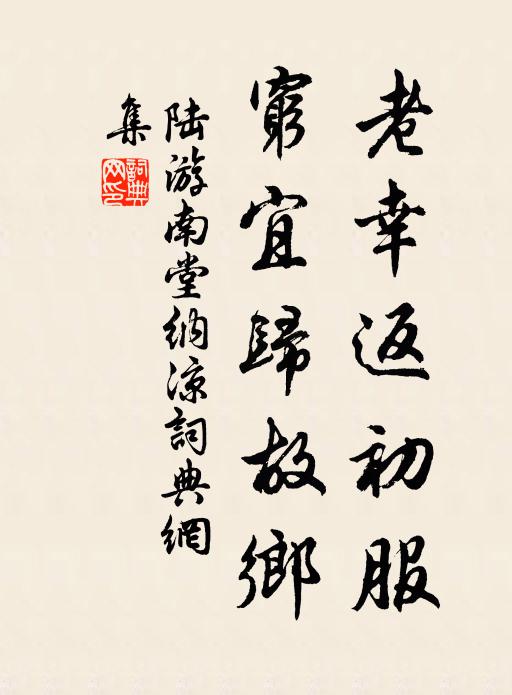 老幸返初服
窮宜歸故鄉
陸游南堂納涼詞典網
集
詞典網印